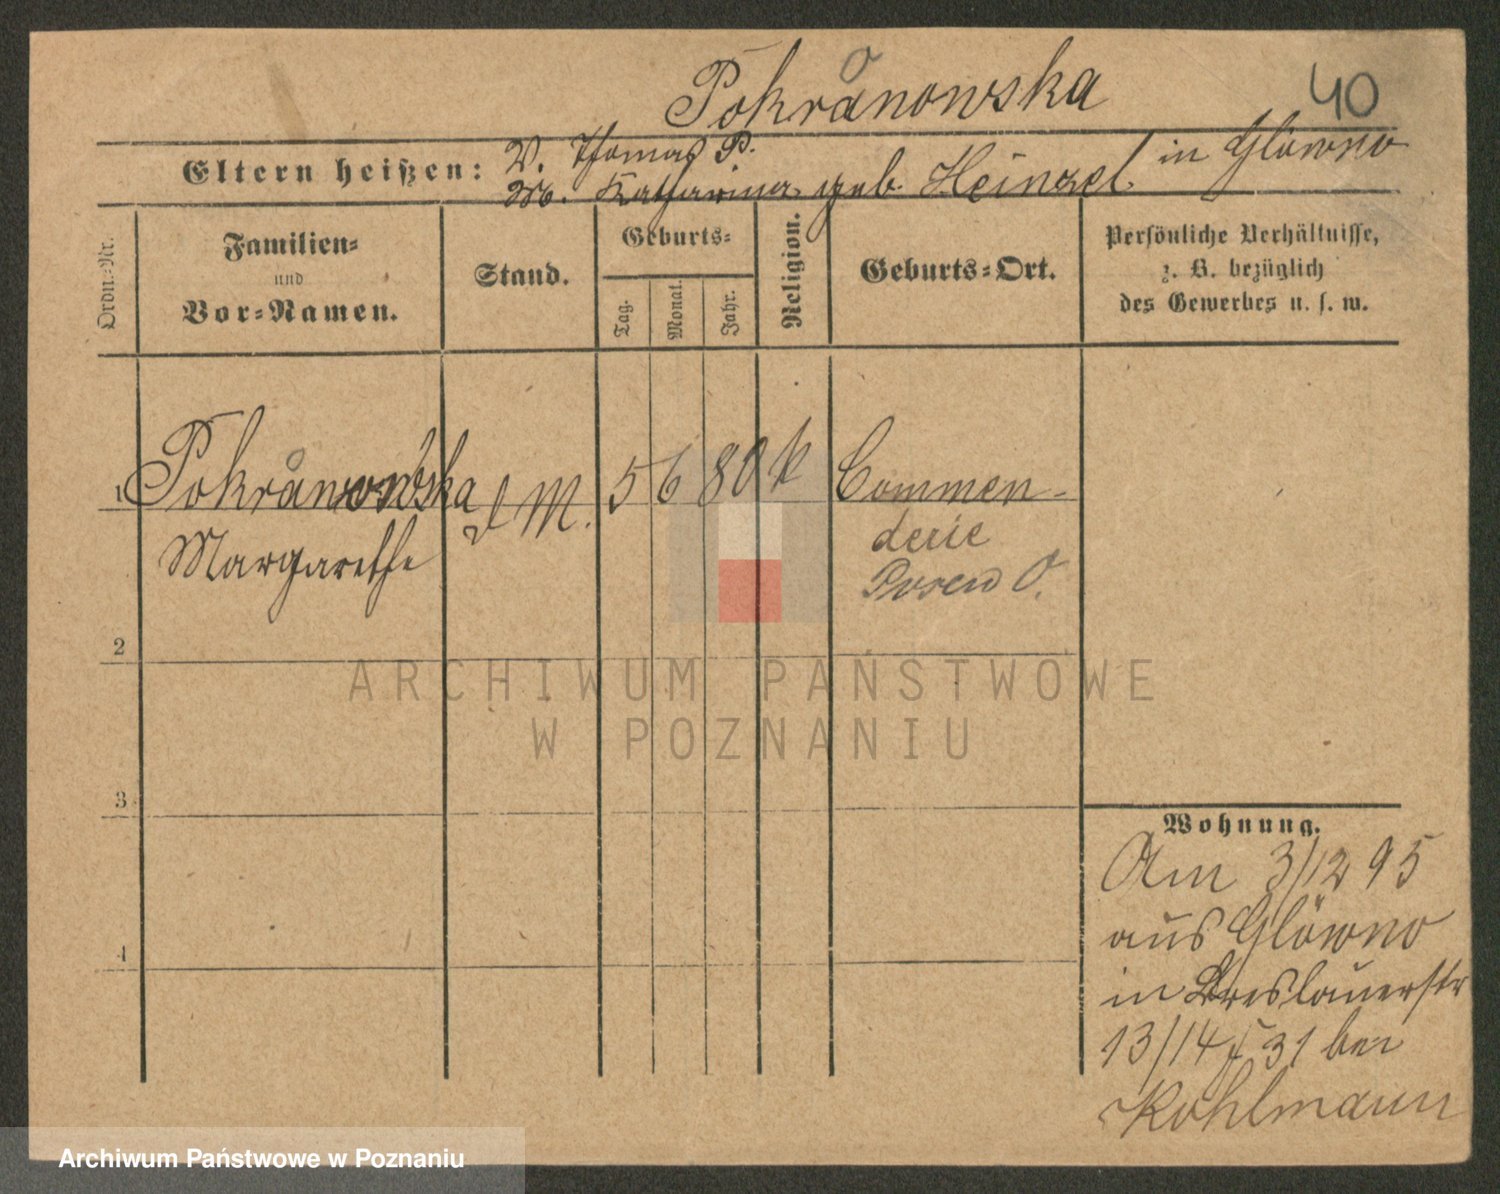 o
Pokranowska
40
Eltern heißen:
V. Thomas P.
M. Katharina geb. Heinzel in Glowno
Ordn.-Nr.
Familien-
und
Vor-Namen.
Stand.
Geburts-
Tag.
Monat.
Jahr.
Religion.
Geburts-Ort.
Persönliche Verhältnisse,
z. B. bezüglich
des Gewerbes u. s. w.
o
1 Pokranowska
d M. 5 6 80 k Commen-
Margarethe
derie
Posen O.
2
3
4
ARCHIWUM PAŃSTWOWE
W POZNANIU
Wohnung.
Am 3/12 95
aus Glowno
in Breslauerstr
13/14 31 bei
Kohlmann
Archiwum Państwowe w Poznaniu